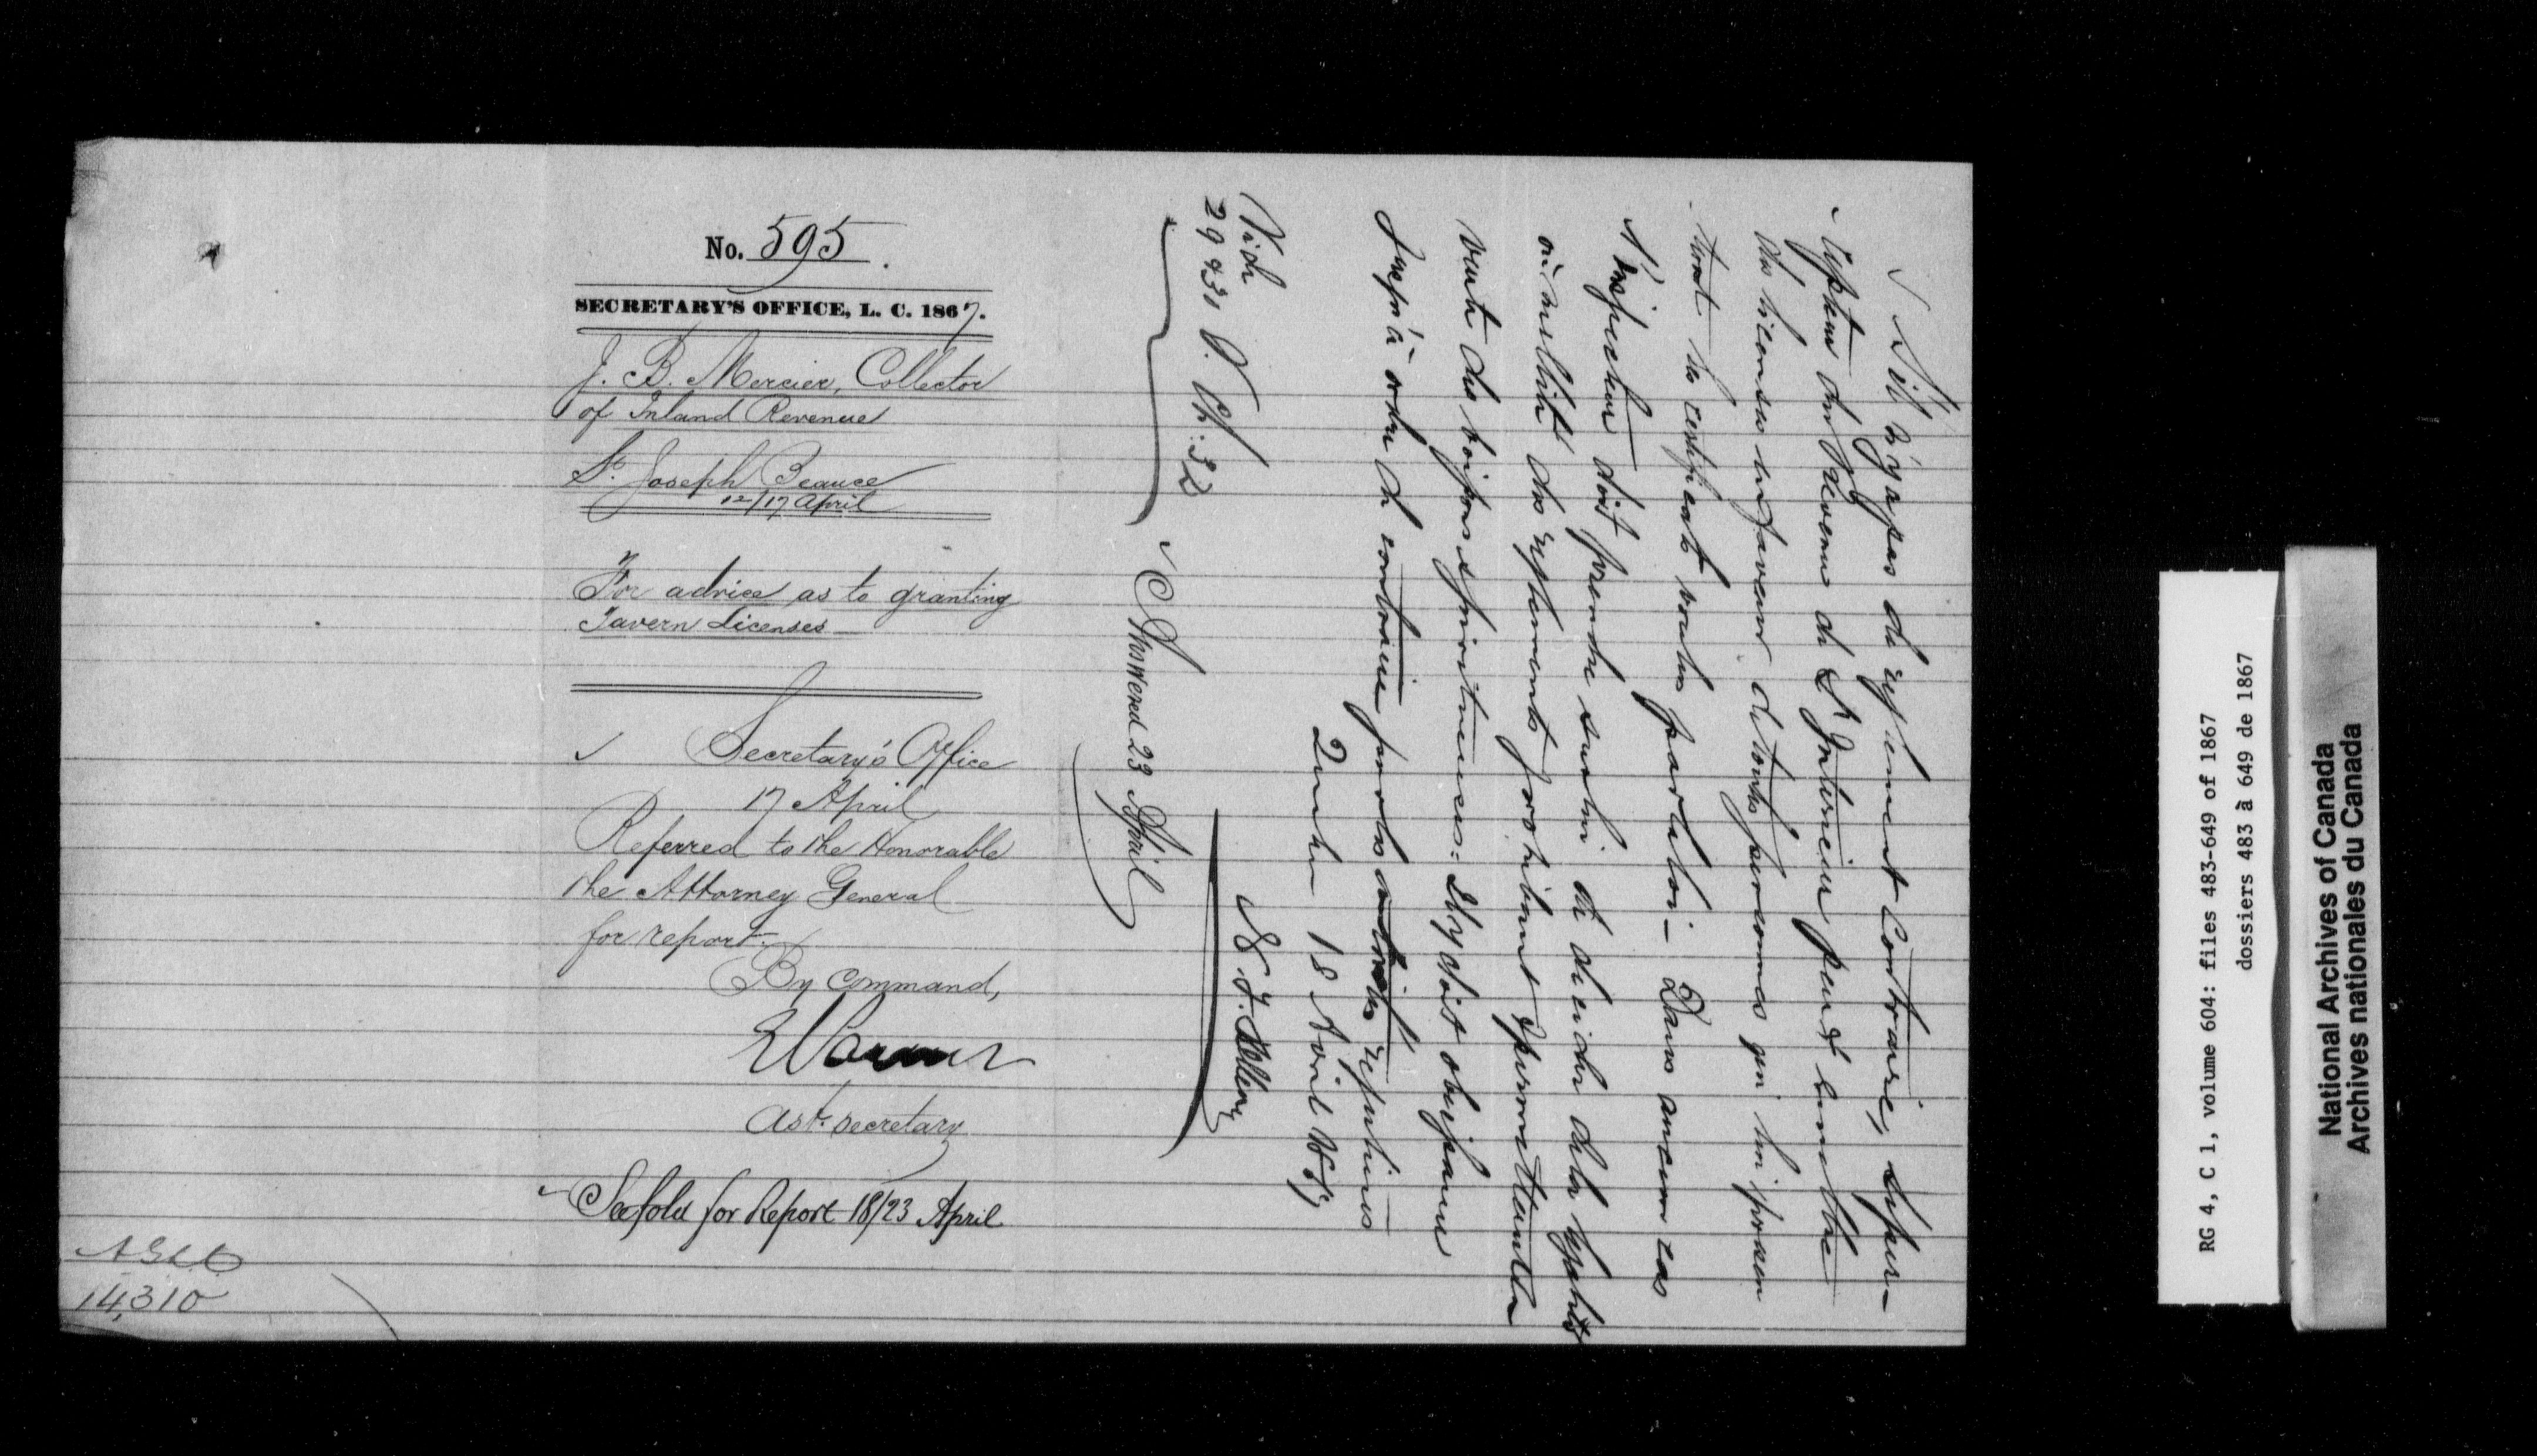 No. 595.
SECRETARY'S OFFICE, L. C. 1867.
J. B. Mercier, Collector
of Inland Revenue
St. Joseph Beauce
12/17 April
For advice as to granting
Tavern Licenses
Secretary's Office
17 April
Referred to the Honorable
the Attorney General
for report.
By Command,
Ast. Secretary
See fold for Report 18/23 April
14,310
S'il n'y a pas de règlement contraire, le percepteur du Revenu de l'Intérieur peut émettre
des licenses en faveur de toutes personnes qui lui présen
teront les certificats voulus par la loi — Dans aucun cas
l'inspecteur doit prendre sur lui de décider de la légalité
ou nullité des règlements prohibant ou permettant la
vente des boissons spiritueuses: Il y doit obéissance
jusqu'à ordre du contraire par les autorités requises
Québec 18 Avril 1867
Vide
29 & 31 V. Ch: 32
Answered 23 April
RG 4, C 1, volume 604: files 483-649 of 1867
dossiers 483 à 649 de 1867
National Archives of Canada
Archives nationales du Canada